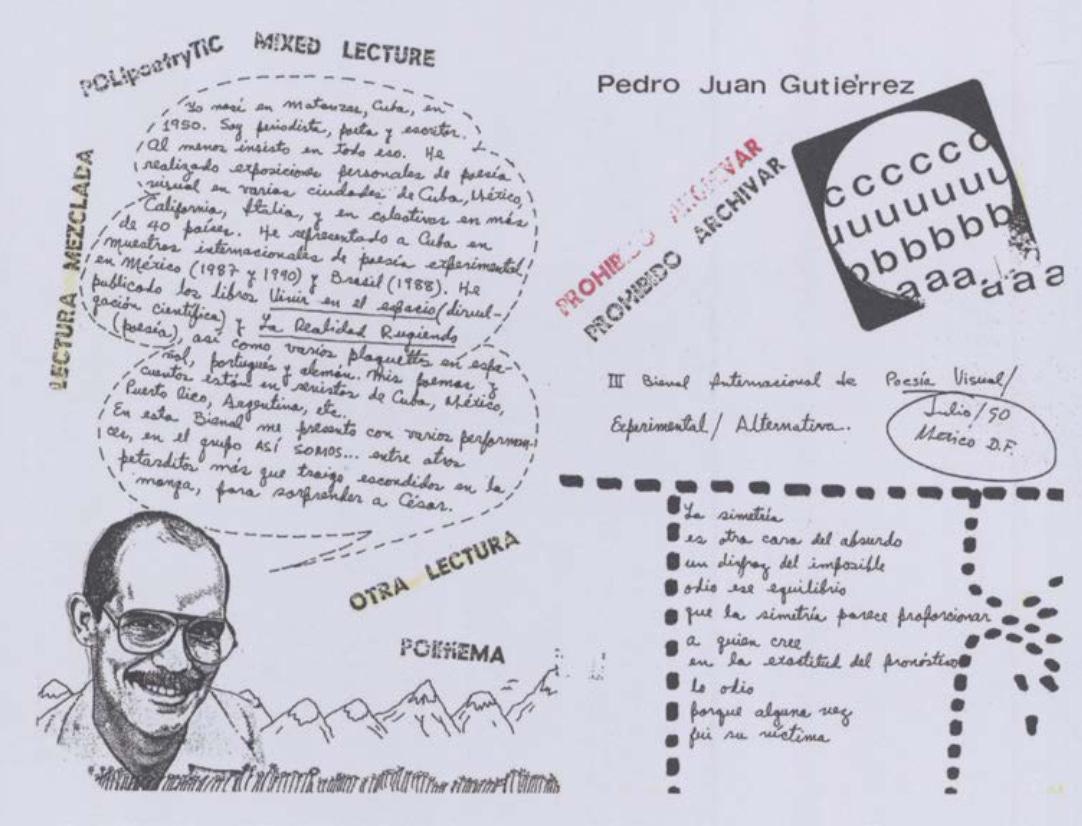 POLIpoetryTIC MIXED LECTURE
LECTURA MEZCLADA
Yo nací en Matanzas, Cuba, en
1950. Soy periodista, poeta y escritor.
Al menos insisto en todo eso. He
realizado exposiciones personales de poesía
visual en varias ciudades de Cuba, México,
California, Italia, y en colectivos en más
de 40 países. He representado a Cuba en
muestras internacionales de poesía experimental
en México (1987 y 1990) y Brasil (1988). He
publicado los libros Vivir en el espacio (divul-
gación científica) y La Realidad Rugiendo
(poesía), así como varios plaquettes en espa-
ñol, portugués y alemán. Mis poemas y
cuentos están en revistas de Cuba, México,
Puerto Rico, Argentina, etc.
En esta Bienal me presento con varios performan-
ces, en el grupo ASÍ SOMOS... entre otros
petarditos más que traigo escondidos en la
manga, para sorprender a César.
OTRA LECTURA
POEMEMA
Pedro Juan Gutiérrez
PROHIBIDO ARCHIVAR
PROHIBIDO ARCHIVAR
cccccc
uuuuuuu
obbbbbb
aaaaaa
III Bienal Internacional de Poesía Visual/
Experimental/ Alternativa.
Julio/90
México D.F.
La simetría
es otra cara del absurdo
un disfraz del imposible
odio ese equilibrio
que la simetría parece proporcionar
a quien cree
en la exactitud del pronóstico
lo odio
porque alguna vez
fui su víctima